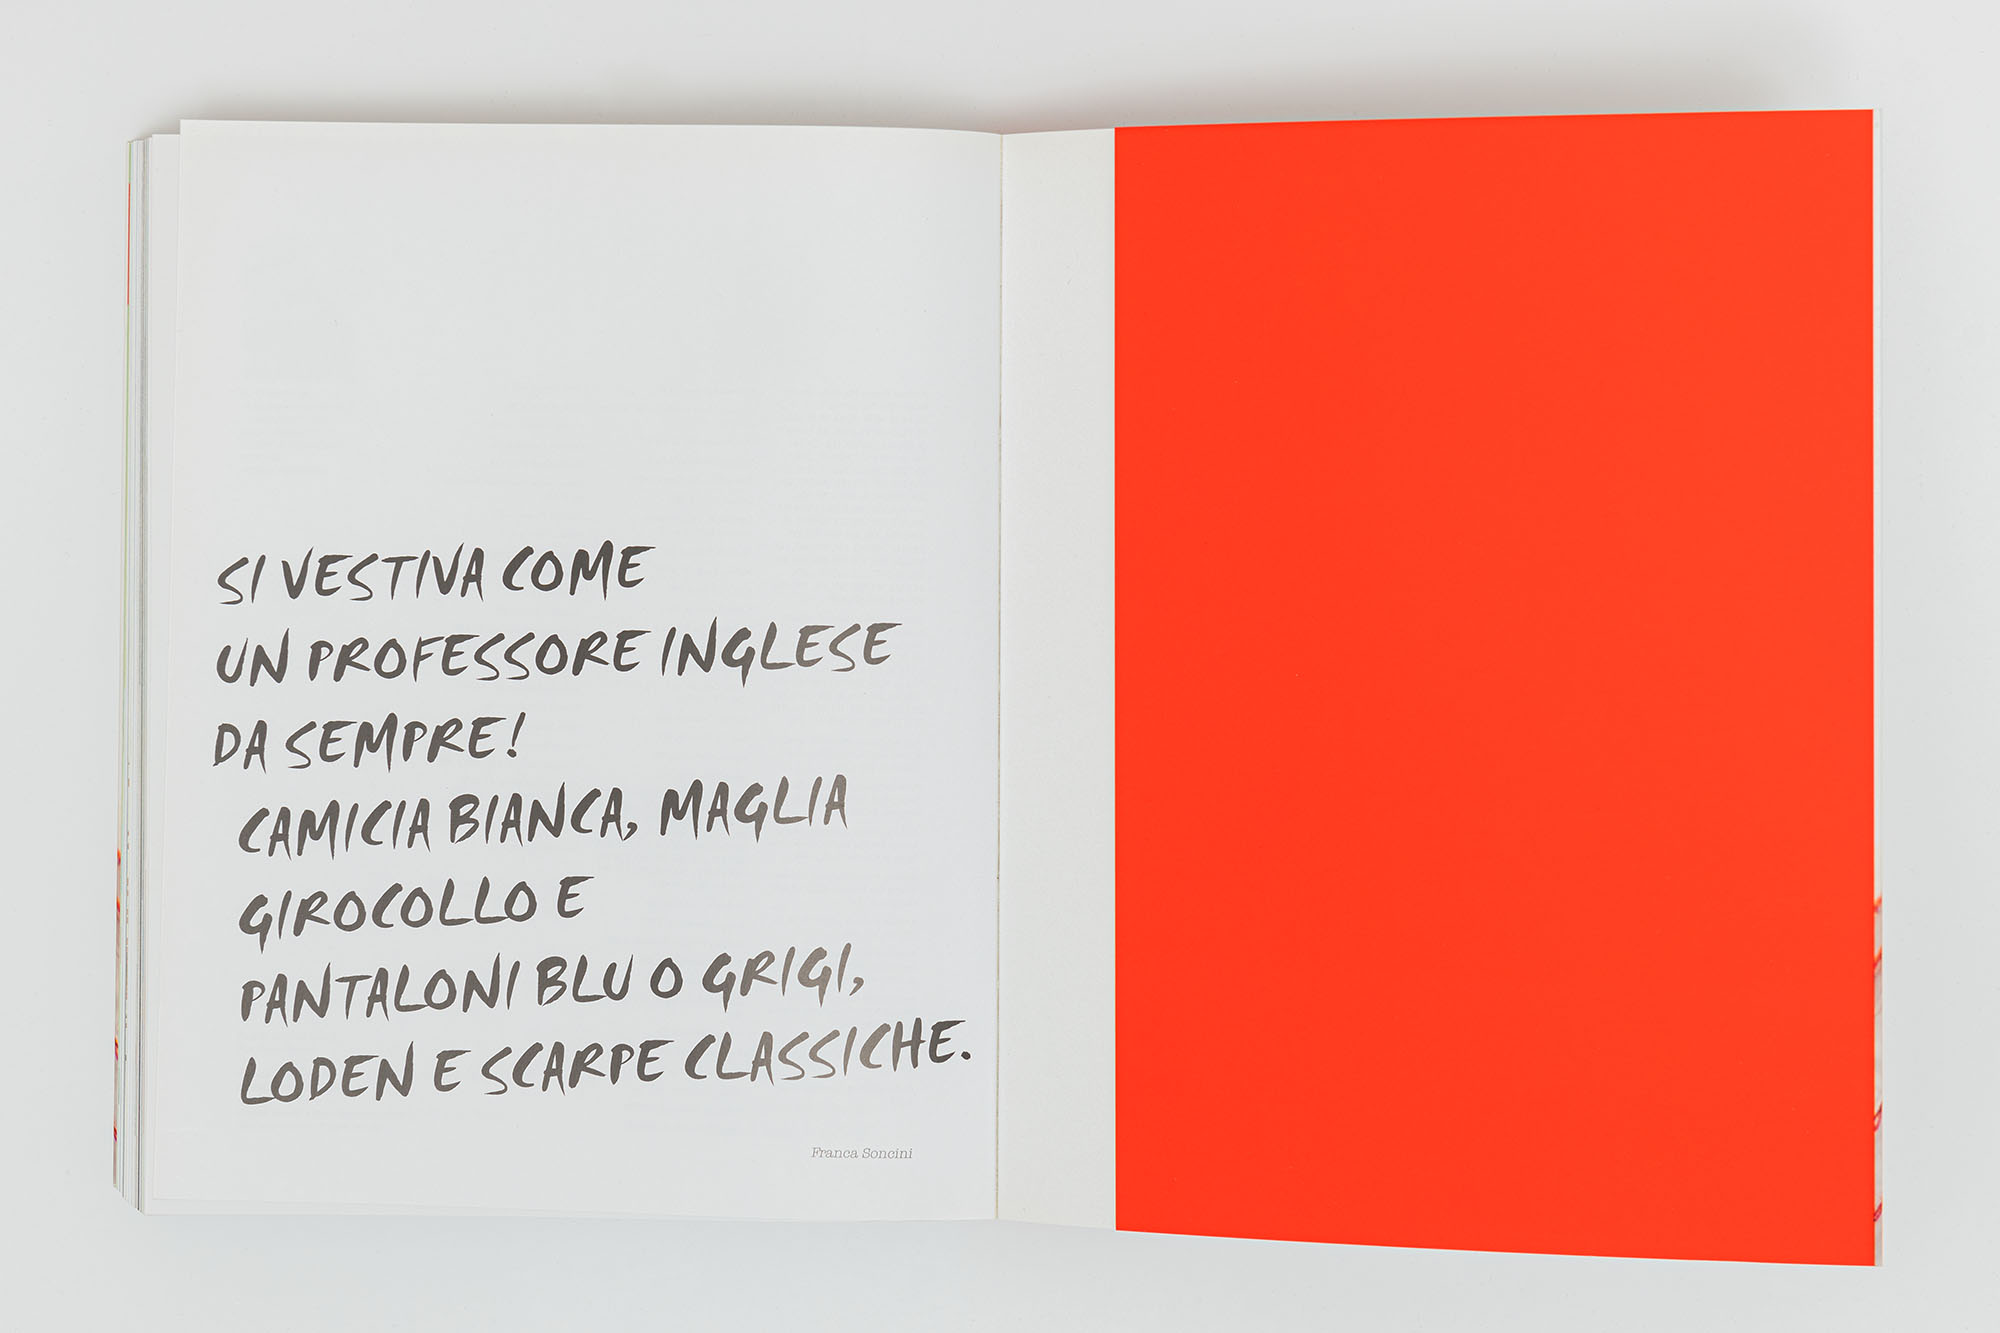 SI VESTIVA COME
UN PROFESSORE INGLESE
DA SEMPRE!
CAMICIA BIANCA, MAGLIA
GIROCOLLO E
PANTALONI BLU O GRIGI,
LODEN E SCARPE CLASSICHE.
Franca Soncini